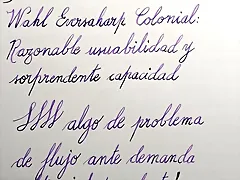 Wahl Eversaharp Colonial:
Razonable usuabilidad y
sorprendente capacidad
SSSS algo de problema
de flujo ante demanda